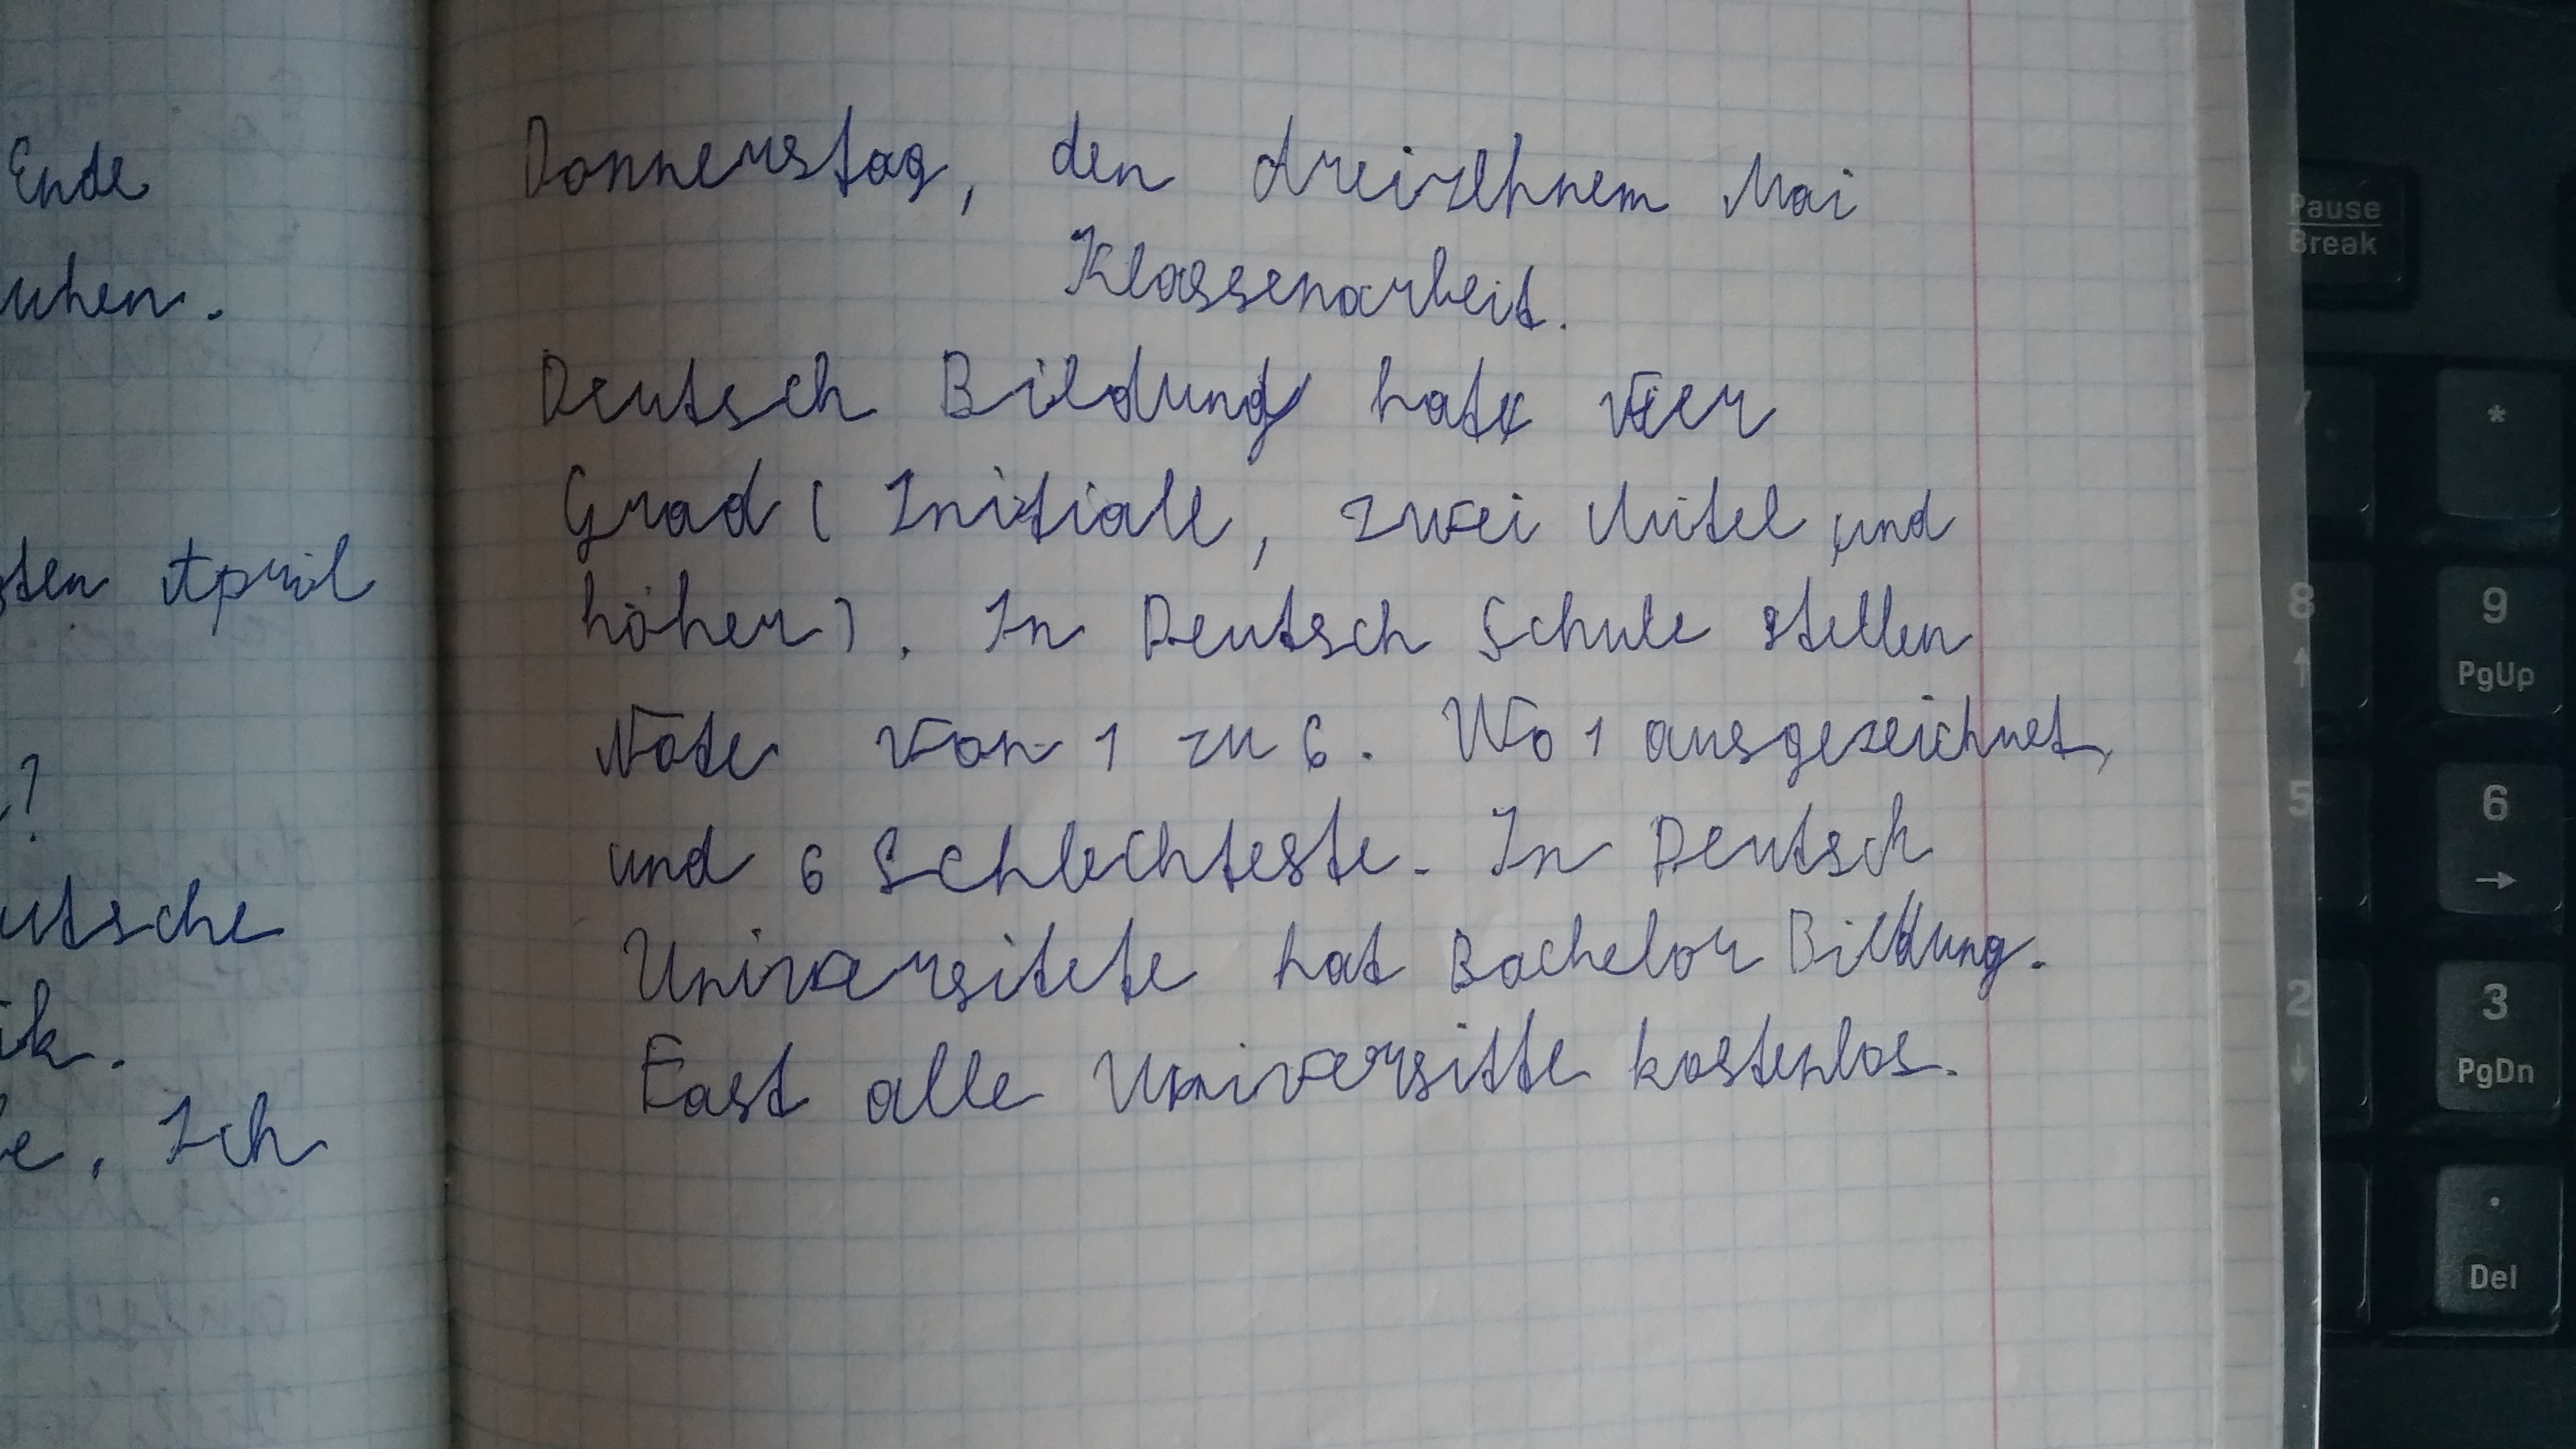 Ende
uhen.
sten April
?
utsche
ik.
e. Ich
Donnerstag, den dreizehnem Mai
Klassenarbeit.
Deutsch Bildung hat vier
Grad ( Initiale, zwei Mitel und
höher). In Deutsch Schule stellen
Note von 1 zu 6. Wo 1 ausgezeichnet,
und 6 Schlechteste. In Deutsch
Universitete hat Bachelor Bildung.
Fast alle Universitte kostenlos.
Pause
Break
*
8
9
PgUp
5
6
2
3
PgDn
.
Del